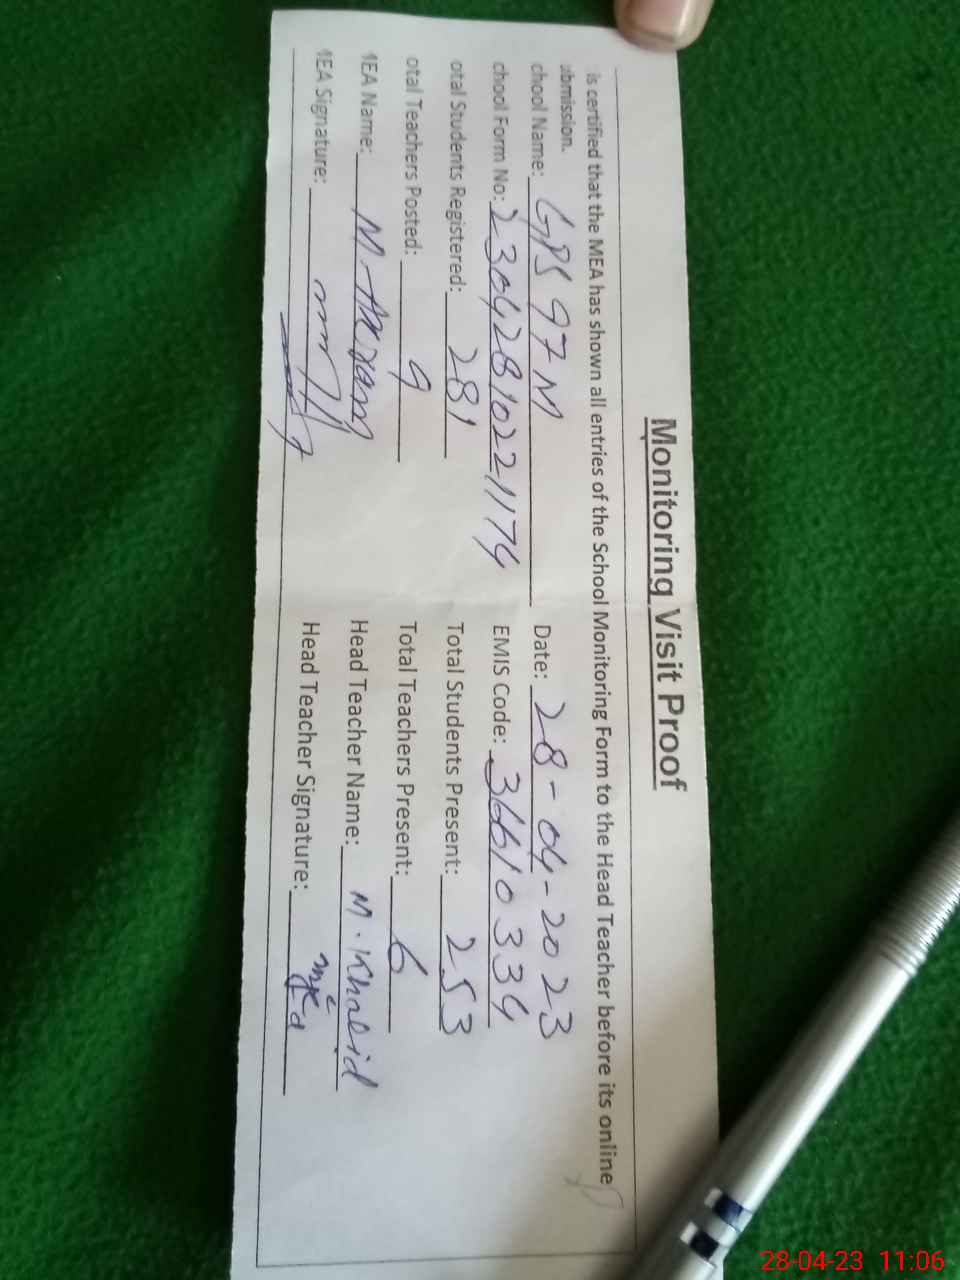 Monitoring Visit Proof
is certified that the MEA has shown all entries of the School Monitoring Form to the Head Teacher before its online
ubmission.
chool Name: GPS 97 M Date: 28-04-2023
chool Form No: 23042810221174 EMIS Code: 36610334
otal Students Registered: 281 Total Students Present: 253
otal Teachers Posted: 9 Total Teachers Present: 6
MEA Name: M. Head Teacher Name: M. Khalid
MEA Signature: Head Teacher Signature:
28-04-23 11:06